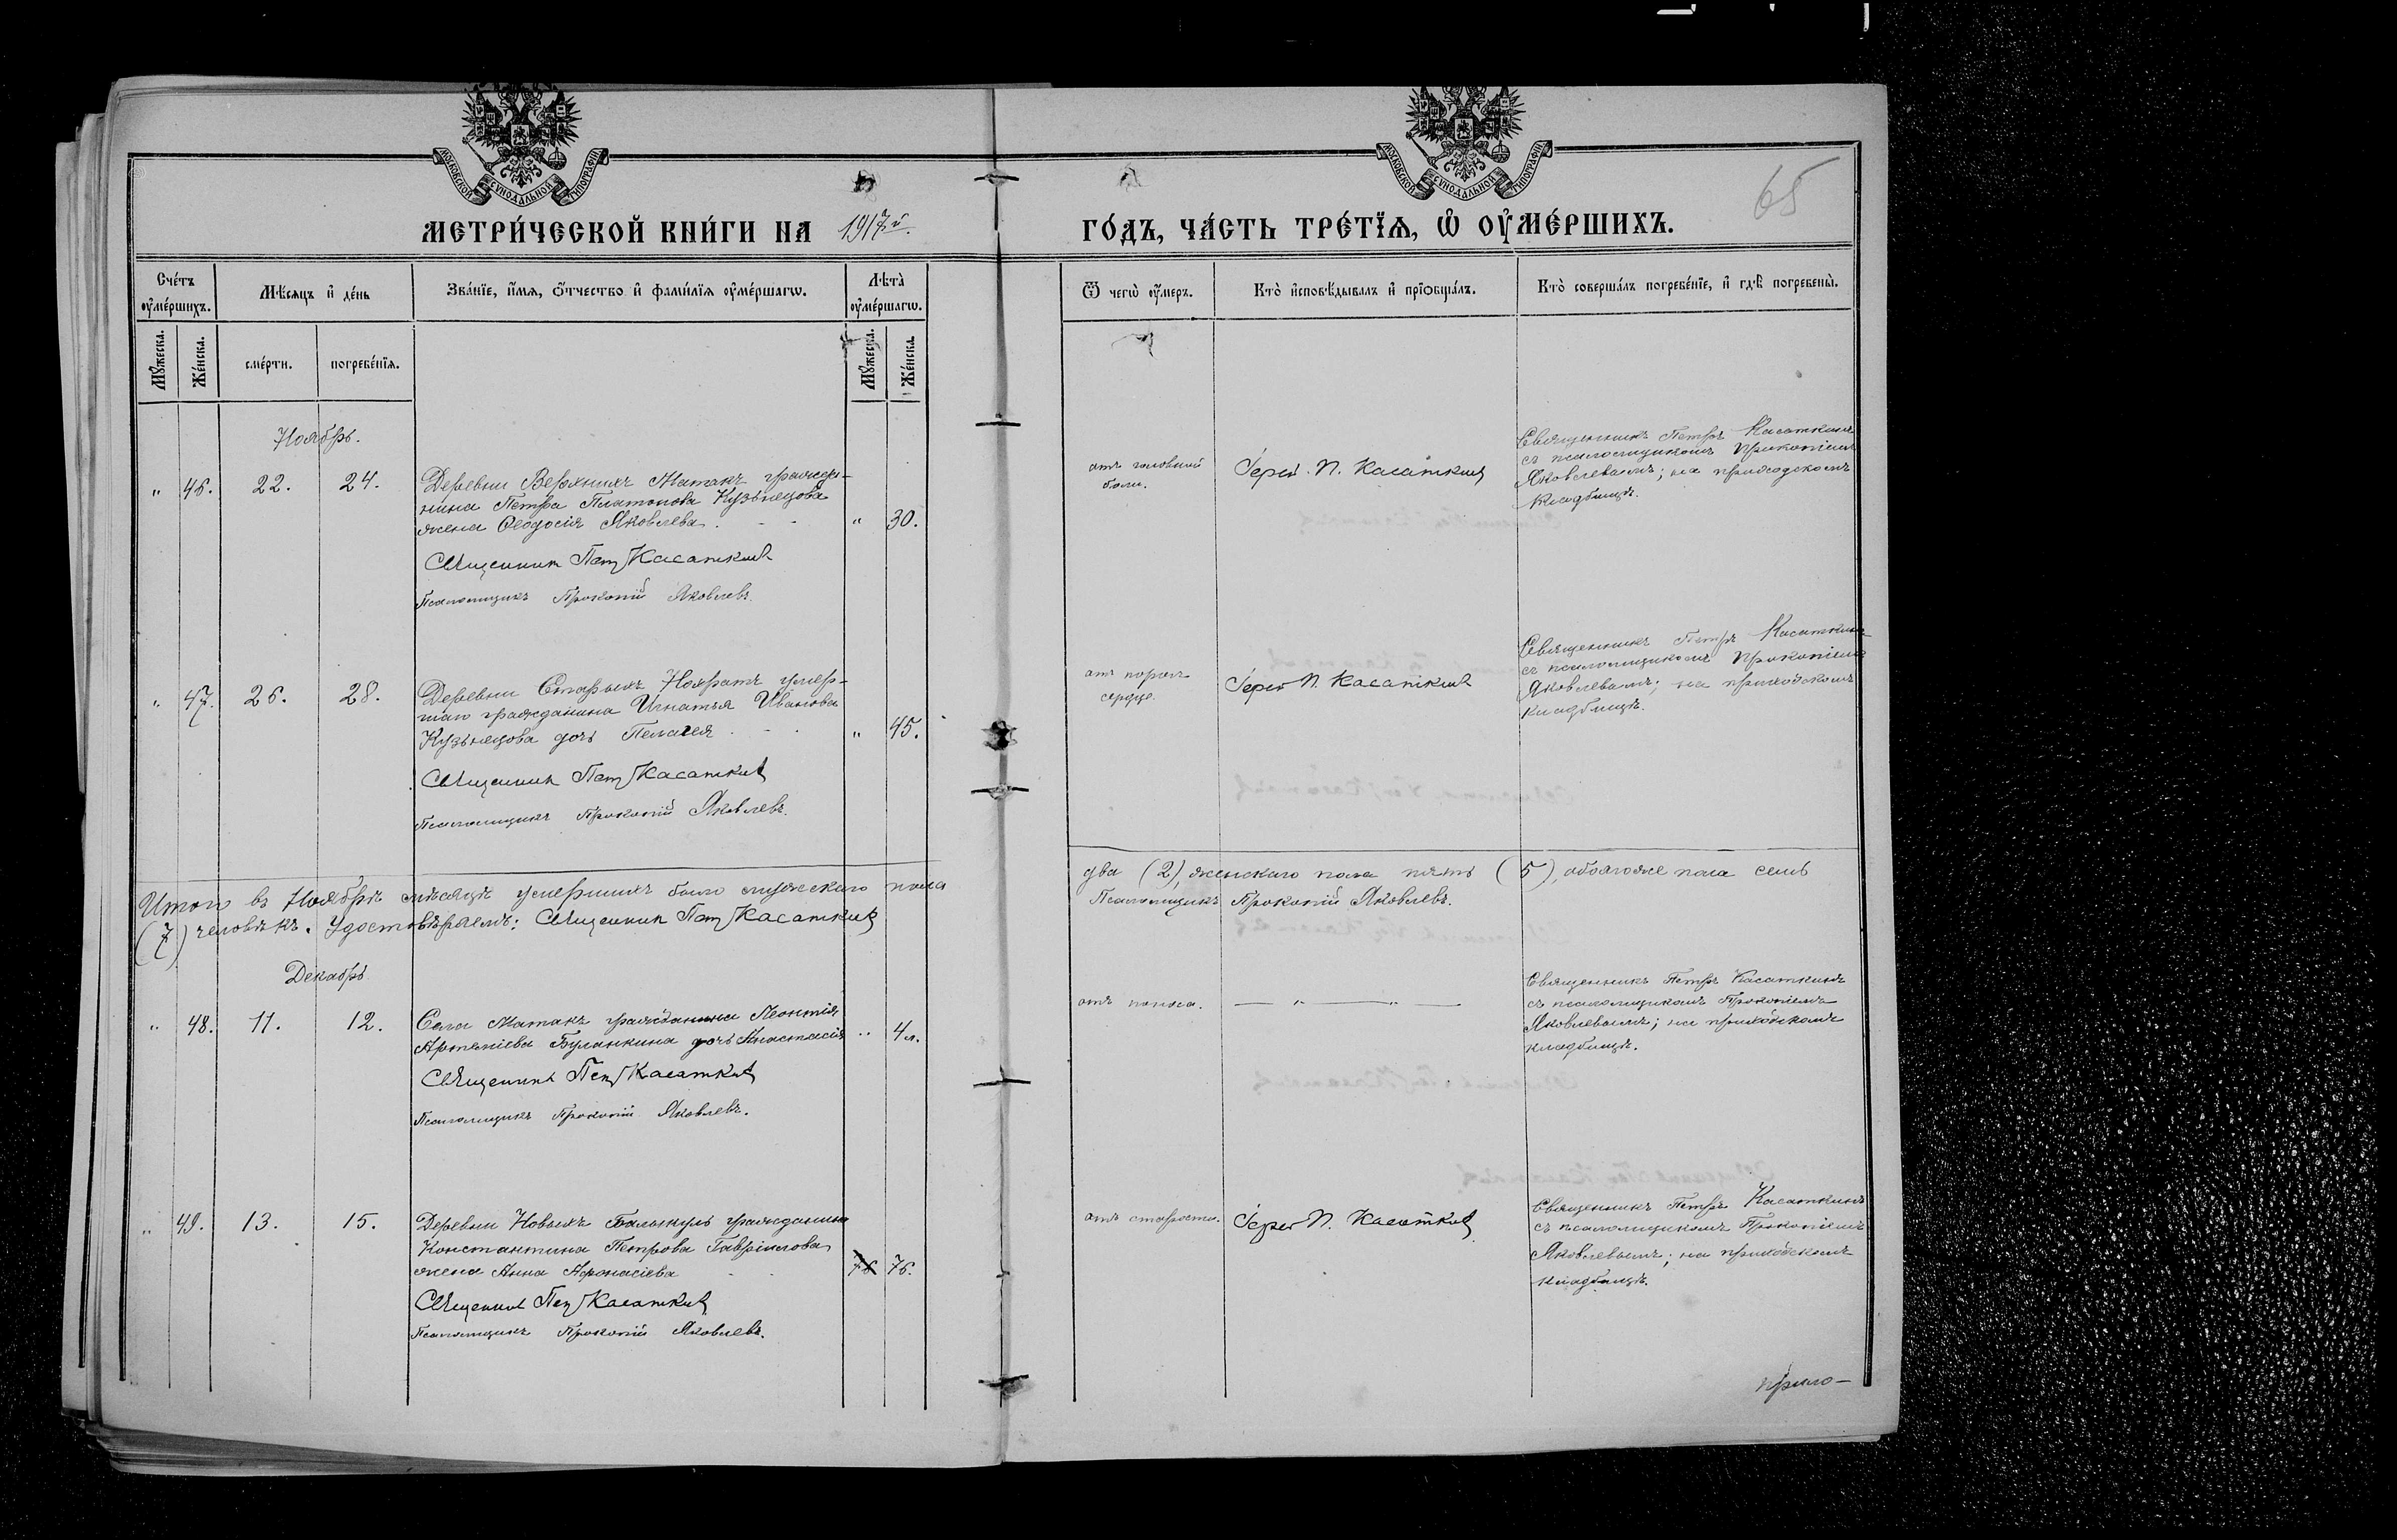 МОСКОВСКОЙ СѴНОДАЛЬНОЙ ТИПОГРАФІИ
МОСКОВСКОЙ СѴНОДАЛЬНОЙ ТИПОГРАФІИ
65
МЕТРИ́ЧЕСКОЙ КНИ́ГИ НА 1917й. ГО́ДЪ, ЧА́СТЬ ТРЕ́ТЇѦ, Ѡ҆ ОУ҆МЕ́РШИХЪ.
Сче́тъ оу҆ме́ршихъ.
Мѣ́сѧцъ и҆ де́нь
Зва́нїе, и҆́мѧ, ѻ҆́тчество и҆ фами́лїѧ оу҆ме́ршагѡ.
Лѣ́та оу҆ме́ршагѡ.
Ѿ чегѡ̀ оу҆́меръ.
Кто̀ и҆сповѣ́дывалъ и҆ прїѡбща́лъ.
Кто̀ соверша́лъ погребе́нїе, и҆ гдѣ̀ погребены̀.
Мꙋ́жеска. Же́нска.
сме́рти. погребе́нїѧ.
Мꙋ́жеска. Же́нска.
Ноябрь.
" 46. 22. 24.
Деревни Верхнихъ Матакъ гражда-
нина Петра Платонова Кузьнецова
жена Ѳеодосія Яковлева. " 30.
Священникъ Петръ Касаткинъ
Псаломщикъ Прокопій Яковлевъ.
отъ головной
боли.
Іерей П. Касаткинъ
Священникъ Петръ Касаткинъ
съ псаломщикомъ Прокопіемъ
Яковлевымъ; на приходскомъ
кладбищѣ.
" 47. 26. 28.
Деревни Старыхъ Нохратъ умер-
шаго гражданина Игнатья Иванова
Кузьнецова дочь Пелагея " 45.
Священникъ Петръ Касаткинъ
Псаломщикъ Прокопій Яковлевъ.
отъ порока
сердца.
Іерей П. Касаткинъ
Священникъ Петръ Касаткинъ
съ псаломщикомъ Прокопіемъ
Яковлевымъ; на приходскомъ
кладбищѣ.
Итого въ Ноябрѣ мѣсяцѣ умершихъ было мужескаго пола два (2), женскаго пола пять (5), обоягоже пола семь
(7) человѣкъ. Удостовѣряемъ: Священникъ Петръ Касаткинъ Псаломщикъ Прокопій Яковлевъ.
Декабрь
" 48. 11. 12.
Села Матакъ гражданина Леонтія
Артемісва Буланкина дочь Анастасія " 4 л.
Священникъ Петръ Касаткинъ
Псаломщикъ Прокопій Яковлевъ.
отъ поноса.
— " — " —
Священникъ Петръ Касаткинъ
съ псаломщикомъ Прокопіемъ
Яковлевымъ; на приходскомъ
кладбищѣ.
" 49. 13. 15.
Деревни Новыхъ Балыкуль гражданина
Константина Петрова Гаврилова
жена Анна Афонасіева 76 76.
Священникъ Петръ Касаткинъ
Псаломщикъ Прокопій Яковлевъ.
отъ старости.
Іерей П. Касаткинъ
Священникъ Петръ Касаткинъ
съ псаломщикомъ Прокопіемъ
Яковлевымъ; на приходскомъ
кладбищѣ.